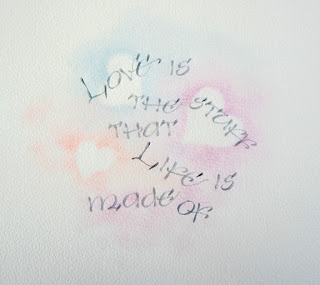 Love is
the stuff
that
Life is
made of